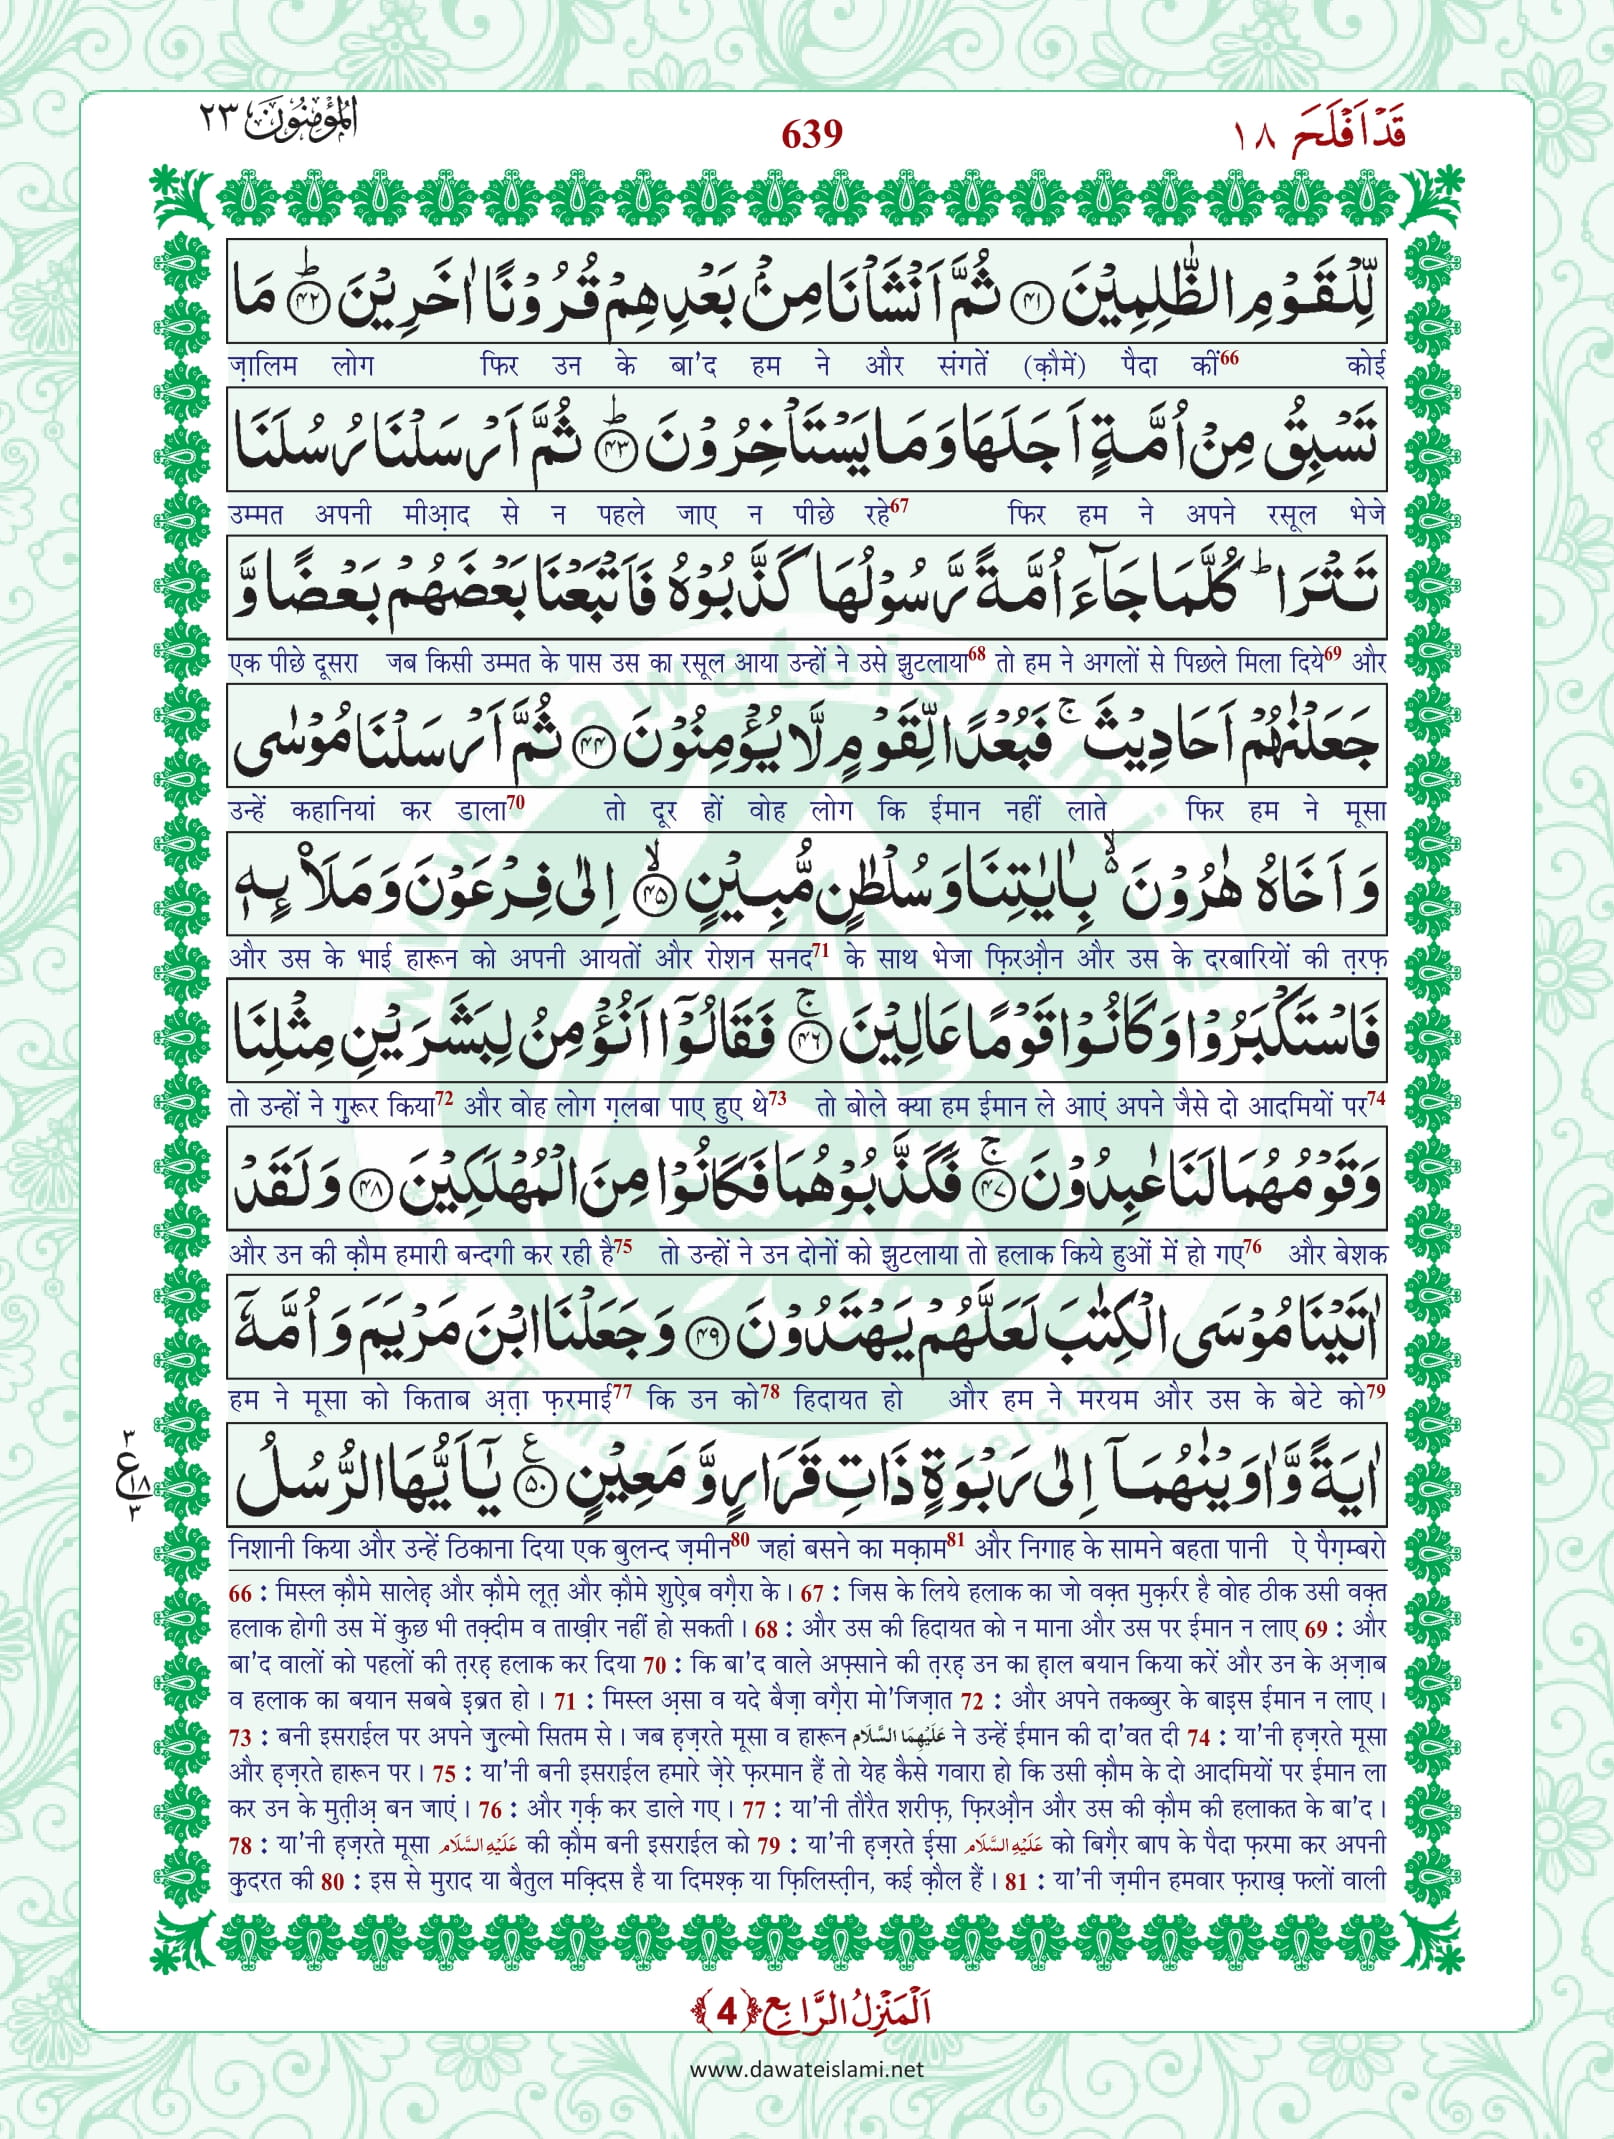 قَدْ اَفْلَحَ ١٨
639
اَلْمُؤْمِنُوْنَ ٢٣
لِّلْقَوْمِ الظّٰلِمِیْنَ ﴿۴۱﴾ ثُمَّ اَنْشَاْنَا مِنْۢ بَعْدِهِمْ قُرُوْنًا اٰخَرِیْنَ ﴿ؕ۴۲﴾ مَا
ज़ालिम लोग फिर उन के बा'द हम ने और संगतें (क़ौमें) पैदा कीं66 कोई
تَسْبِقُ مِنْ اُمَّةٍ اَجَلَهَا وَمَا یَسْتَاْخِرُوْنَ ﴿ؕ۴۳﴾ ثُمَّ اَرْسَلْنَا رُسُلَنَا
उम्मत अपनी मीआ़द से न पहले जाए न पीछे रहे67 फिर हम ने अपने रसूल भेजे
تَتْرَا ؕ كُلَّمَا جَآءَ اُمَّةً رَّسُوْلُهَا كَذَّبُوْهُ فَاَتْبَعْنَا بَعْضَهُمْ بَعْضًا وَّ
एक पीछे दूसरा जब किसी उम्मत के पास उस का रसूल आया उन्हों ने उसे झुटलाया68 तो हम ने अगलों से पिछले मिला दिये69 और
جَعَلْنٰهُمْ اَحَادِیْثَ ۚ فَبُعْدًا لِّقَوْمٍ لَّا یُؤْمِنُوْنَ ﴿۴۴﴾ ثُمَّ اَرْسَلْنَا مُوْسٰى
उन्हें कहानियां कर डाला70 तो दूर हों वोह लोग कि ईमान नहीं लाते फिर हम ने मूसा
وَ اَخَاهُ هٰرُوْنَ ۙ۬ بِاٰیٰتِنَا وَسُلْطٰنٍ مُّبِیْنٍ ﴿ۙ۴۵﴾ اِلٰى فِرْعَوْنَ وَمَلَاۡئِهٖ
और उस के भाई हारून को अपनी आयतों और रोशन सनद71 के साथ भेजा फ़िरऔ़न और उस के दरबारियों की त़रफ़
فَاسْتَكْبَرُوْا وَكَانُوْا قَوْمًا عَالِیْنَ ﴿ۚ۴۶﴾ فَقَالُوْۤا اَنُؤْمِنُ لِبَشَرَیْنِ مِثْلِنَا
तो उन्हों ने गु़रूर किया72 और वोह लोग ग़लबा पाए हुए थे73 तो बोले क्या हम ईमान ले आएं अपने जैसे दो आदमियों पर74
وَقَوْمُهُمَا لَنَا عٰبِدُوْنَ ﴿ۚ۴۷﴾ فَكَذَّبُوْهُمَا فَكَانُوْا مِنَ الْمُهْلَكِیْنَ ﴿۴۸﴾ وَلَقَدْ
और उन की क़ौम हमारी बन्दगी कर रही है75 तो उन्हों ने उन दोनों को झुटलाया तो हलाक किये हुओं में हो गए76 और बेशक
اٰتَیْنَا مُوْسَى الْكِتٰبَ لَعَلَّهُمْ یَهْتَدُوْنَ ﴿۴۹﴾ وَجَعَلْنَا ابْنَ مَرْیَمَ وَاُمَّهٗۤ
हम ने मूसा को किताब अ़त़ा फ़रमाई77 कि उन को78 हिदायत हो और हम ने मरयम और उस के बेटे को79
اٰیَةً وَّاٰوَیْنٰهُمَاۤ اِلٰى رَبْوَةٍ ذَاتِ قَرَارٍ وَّمَعِیْنٍ ﴿۵۰﴾ۧ یٰۤاَیُّهَا الرُّسُلُ
٣ ع ١٨ ٣
निशानी किया और उन्हें ठिकाना दिया एक बुलन्द ज़मीन80 जहां बसने का मक़ाम81 और निगाह के सामने बहता पानी ऐ पैग़म्बरो
66 : मिस्ल क़ौमे सालेह़ और क़ौमे लूत़ और क़ौमे शुऐ़ब वग़ैरा के । 67 : जिस के लिये हलाक का जो वक़्त मुक़र्रर है वोह ठीक उसी वक़्त
हलाक होगी उस में कुछ भी तक़्दीम व ताख़ीर नहीं हो सकती । 68 : और उस की हिदायत को न माना और उस पर ईमान न लाए 69 : और
बा'द वालों को पहलों की त़रह़ हलाक कर दिया 70 : कि बा'द वाले अफ़्साने की त़रह़ उन का ह़ाल बयान किया करें और उन के अ़ज़ाब
व हलाक का बयान सबबे इ़ब्रत हो । 71 : मिस्ल अ़सा व यदे बैज़ा वग़ैरा मो'जिज़ात 72 : और अपने तकब्बुर के बाइ़स ईमान न लाए ।
73 : बनी इसराईल पर अपने जु़ल्मो सितम से । जब ह़ज़रते मूसा व हारून عَلَیْهِمَا السَّلَام ने उन्हें ईमान की दा'वत दी 74 : या'नी ह़ज़रते मूसा
और ह़ज़रते हारून पर । 75 : या'नी बनी इसराईल हमारे ज़ेरे फ़रमान हैं तो येह कैसे गवारा हो कि उसी क़ौम के दो आदमियों पर ईमान ला
कर उन के मुत़ीअ़ बन जाएं । 76 : और ग़र्क़ कर डाले गए । 77 : या'नी तौरैत शरीफ़, फ़िरऔ़न और उस की क़ौम की हलाकत के बा'द ।
78 : या'नी ह़ज़रते मूसा عَلَیْهِ السَّلَام की क़ौम बनी इसराईल को 79 : या'नी ह़ज़रते ई़सा عَلَیْهِ السَّلَام को बिग़ैर बाप के पैदा फ़रमा कर अपनी
कु़दरत की 80 : इस से मुराद या बैतुल मक़्दिस है या दिमश्क़ या फ़िलिस्त़ीन, कई क़ौल हैं । 81 : या'नी ज़मीन हमवार फ़राख़ फलों वाली
اَلْمَنْزِلُ الرَّابِع ﴿4﴾
www.dawateislami.net